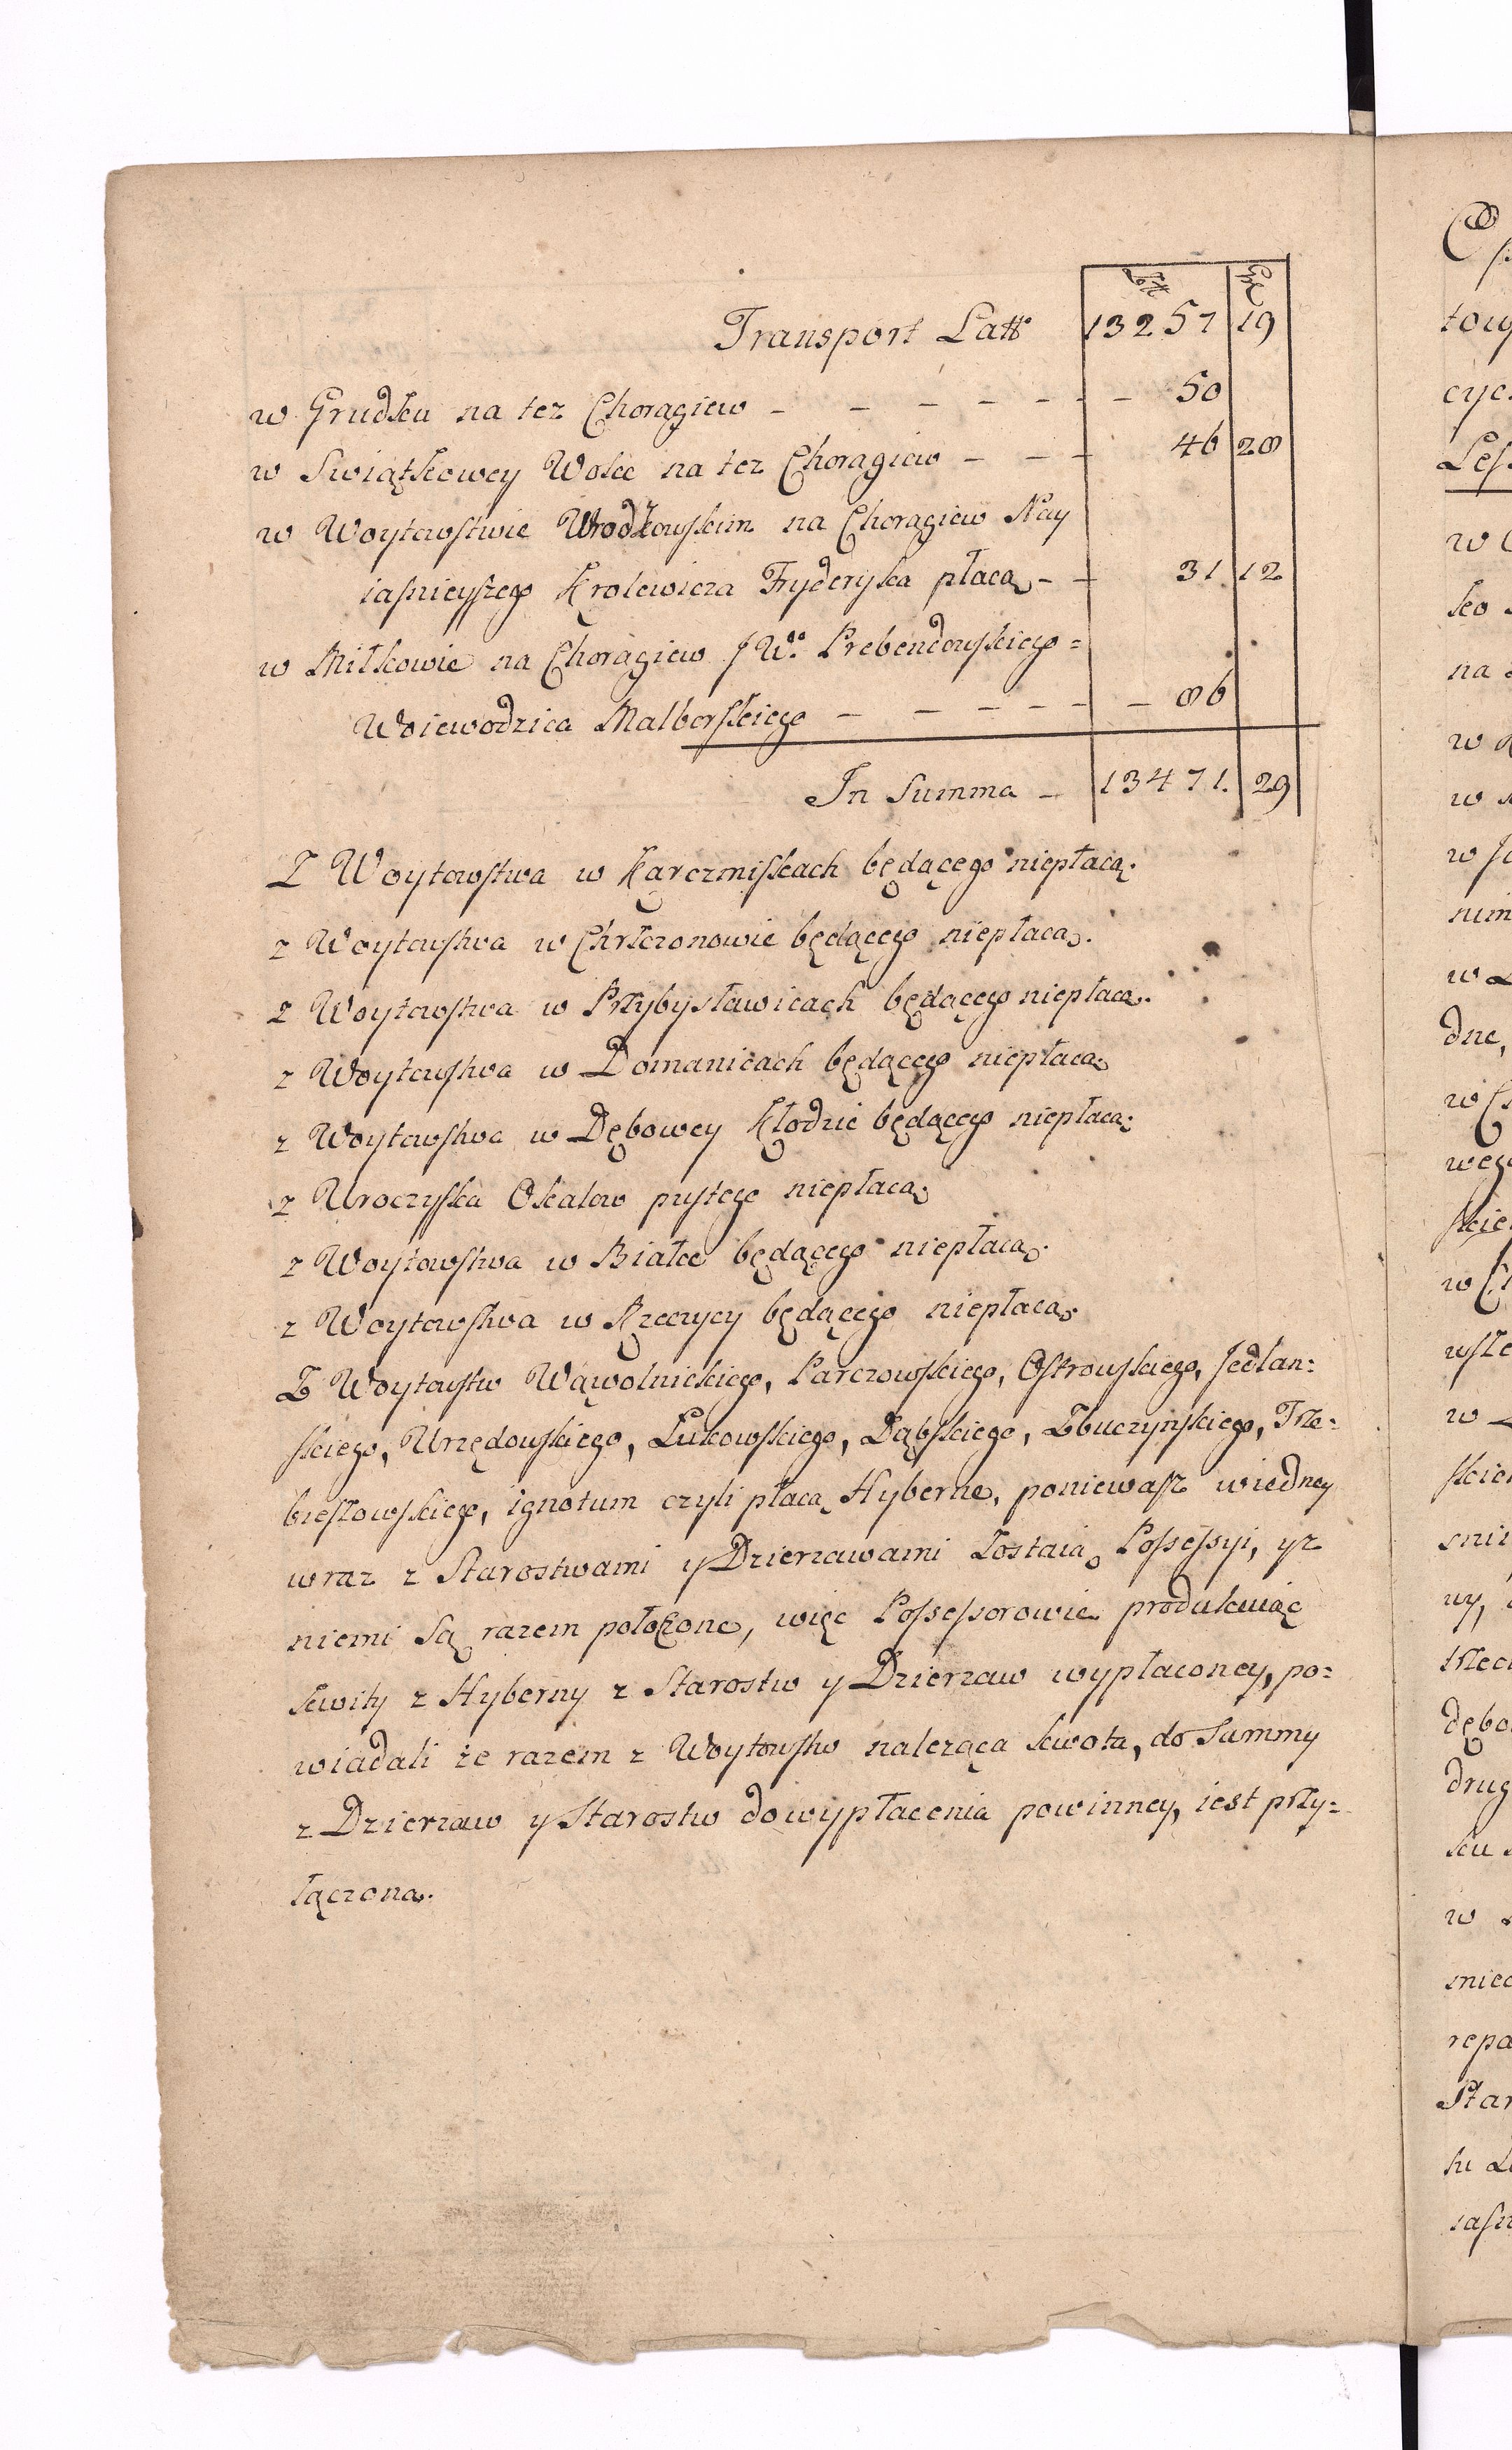 Złł Gr
Transport Latt 13257 19
w Grudku na też Chorągiew - - - - - - 50
w Swiątkowey Wolce na też Chorągiew - - - 46 28
w Woytowstwie Wrodkowskim na Chorągiew Nay
iaśnieyszego Krolewicza Fryderyka płacą - - 31 12
w Miłkowie na Chorągiew J W.o Prebendowskiego =
Woiewodzica Malborskiego - - - - - - 86
In Summa - 13471. 29
Z Woytowstwa w Karczmiskach będącego niepłacą.
z Woytowstwa w Chrłczonowie będącego niepłacą.
z Woytowstwa w Przybysławicach będącego niepłacą.
z Woytowstwa w Domanicach będącego niepłacą
z Woytowstwa w Dębowey Kłodzie będącego niepłacą.
z Uroczyska Okalew pustego niepłacą.
z Woytowstwa w Białce będącego niepłacą.
z Woytowstwa w Rzeczycy będącego niepłacą.
Z Woytowstw Wąwolnickiego, Parczowskiego, Ostrowskiego, Jedlan=
skiego, Urzędowskiego, Łukowskiego, Dąbskiego, Zbuczynskiego, Trze=
bieszowskiego, ignotum czyli płacą Hyberne, poniewasz wiedney
wraz z Starostwami y Dzierzawami Zostaią Possessyi, y z
niemi Są razem położone, więc Possessorowie produkuiąc
kwity z Hyberny z Starostw y Dzierzaw wypłaconey, po=
wiadali że razem z Woytowstw naleząca kwota, do Summy
z Dzierzaw y Starostw do wypłacenia powinney, iest przy=
łączona.